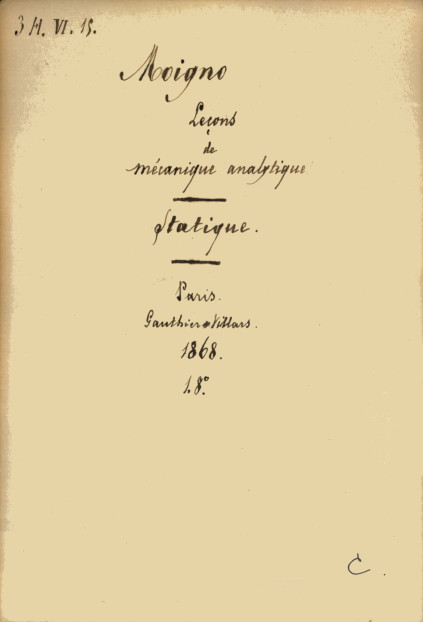 3 H. VI. 15.
Moigno
Leçons
de
mécanique analytique
Statique.
Paris.
Gauthier-Villars.
1868.
18°.
C.